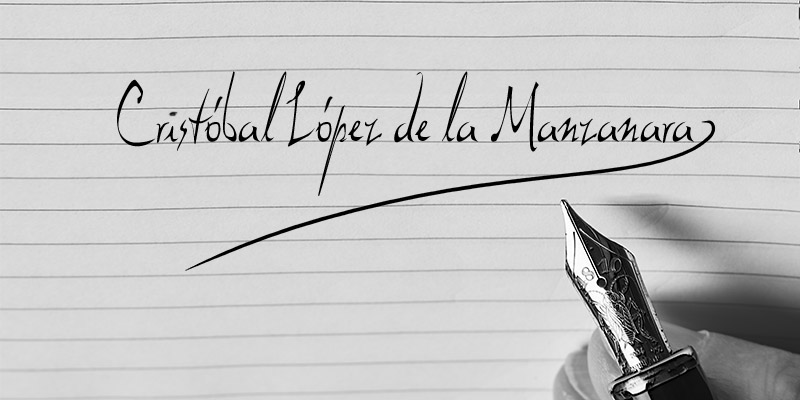 Cristóbal López de la Manzanara